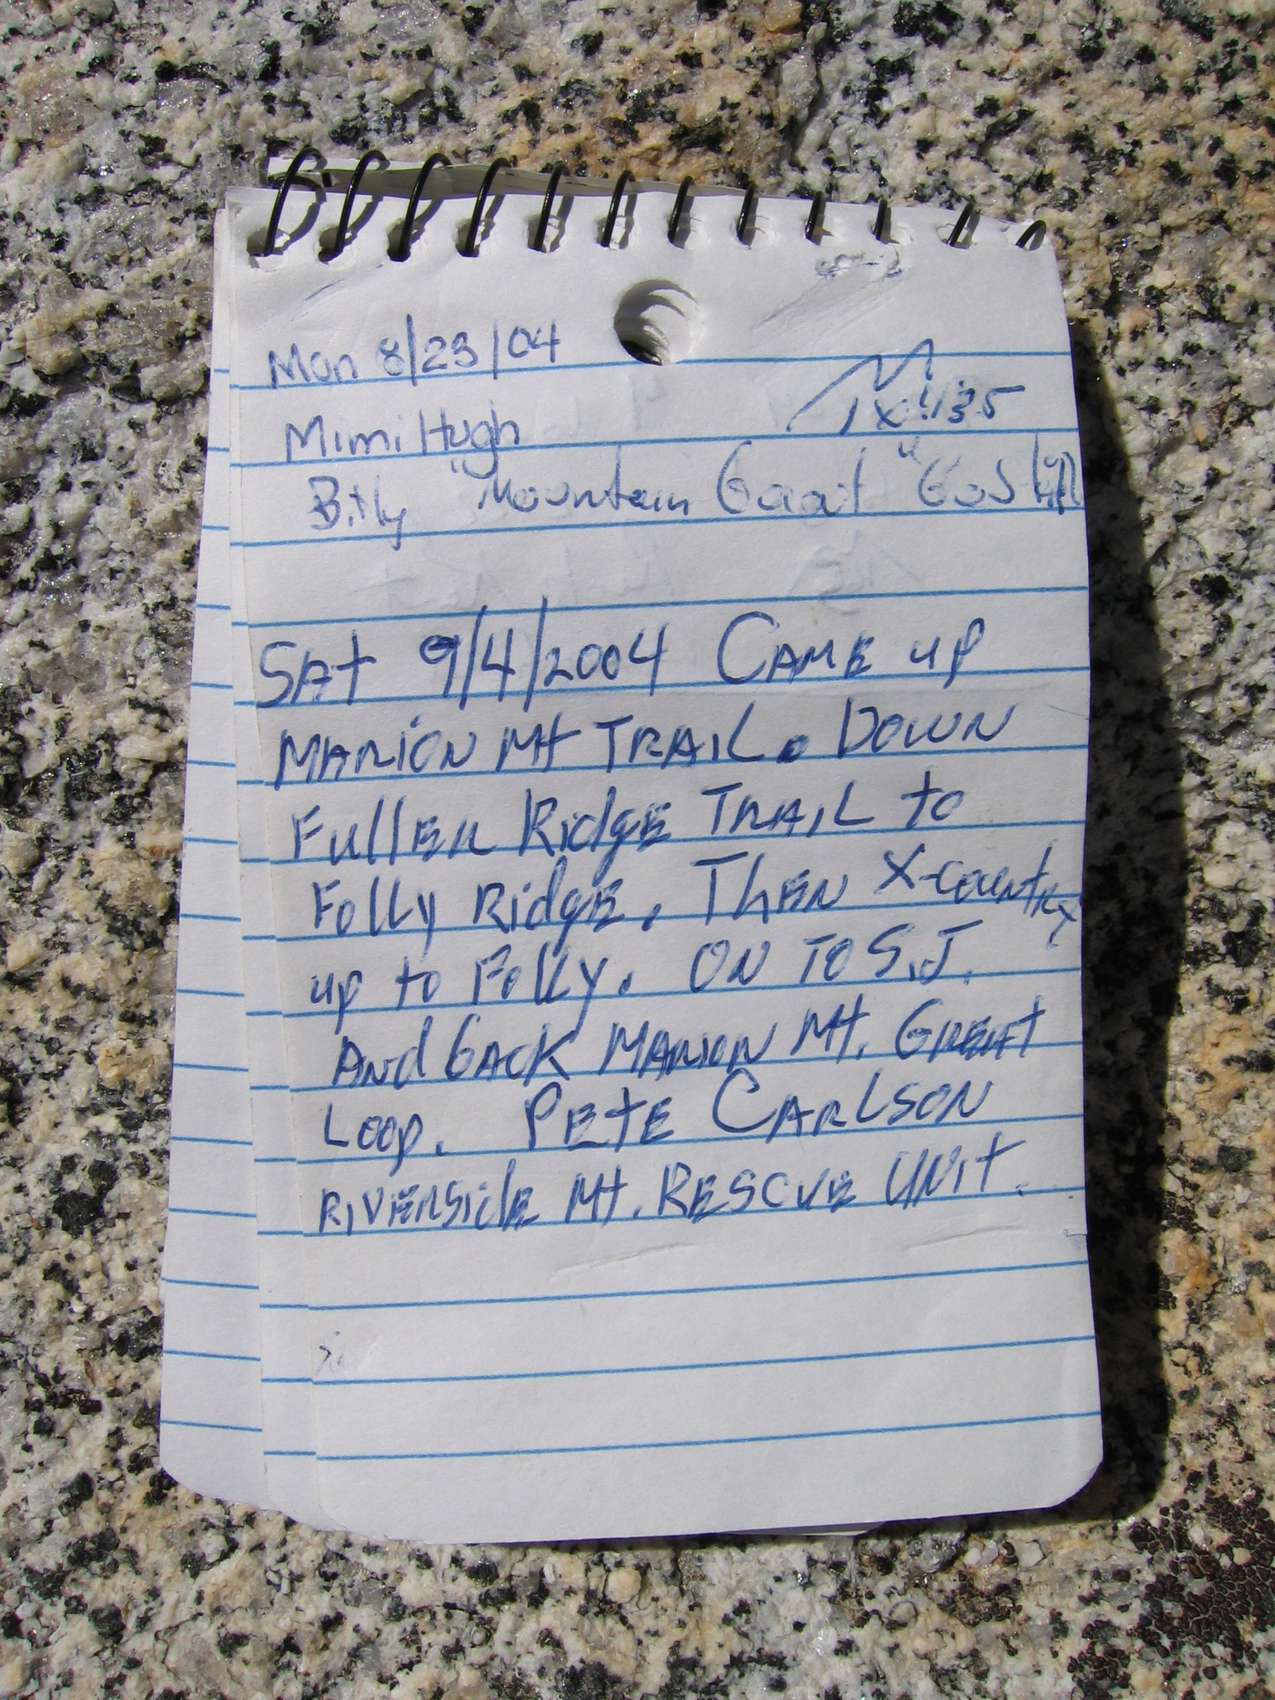 Mon 8/23/04
1 x 435
Mimi Hugh
Billy "Mountain Goat"
SAt 9/4/2004 CAME up
MARION Mt TRAIL. DOWN
FullER RidgE TRAIL to
Folly RidgE. ThEN X-country
up to Folly. ON TO S.J.
ANd bACK MARION Mt. GREAt
Loop. PEtE CARLSON
RIVERSidE Mt. RESCUE UNit.